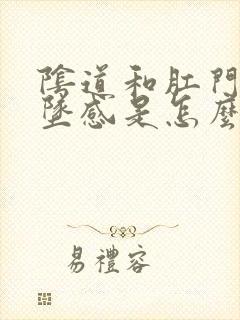 陰道和肛門
墜感是怎麼
易禮容